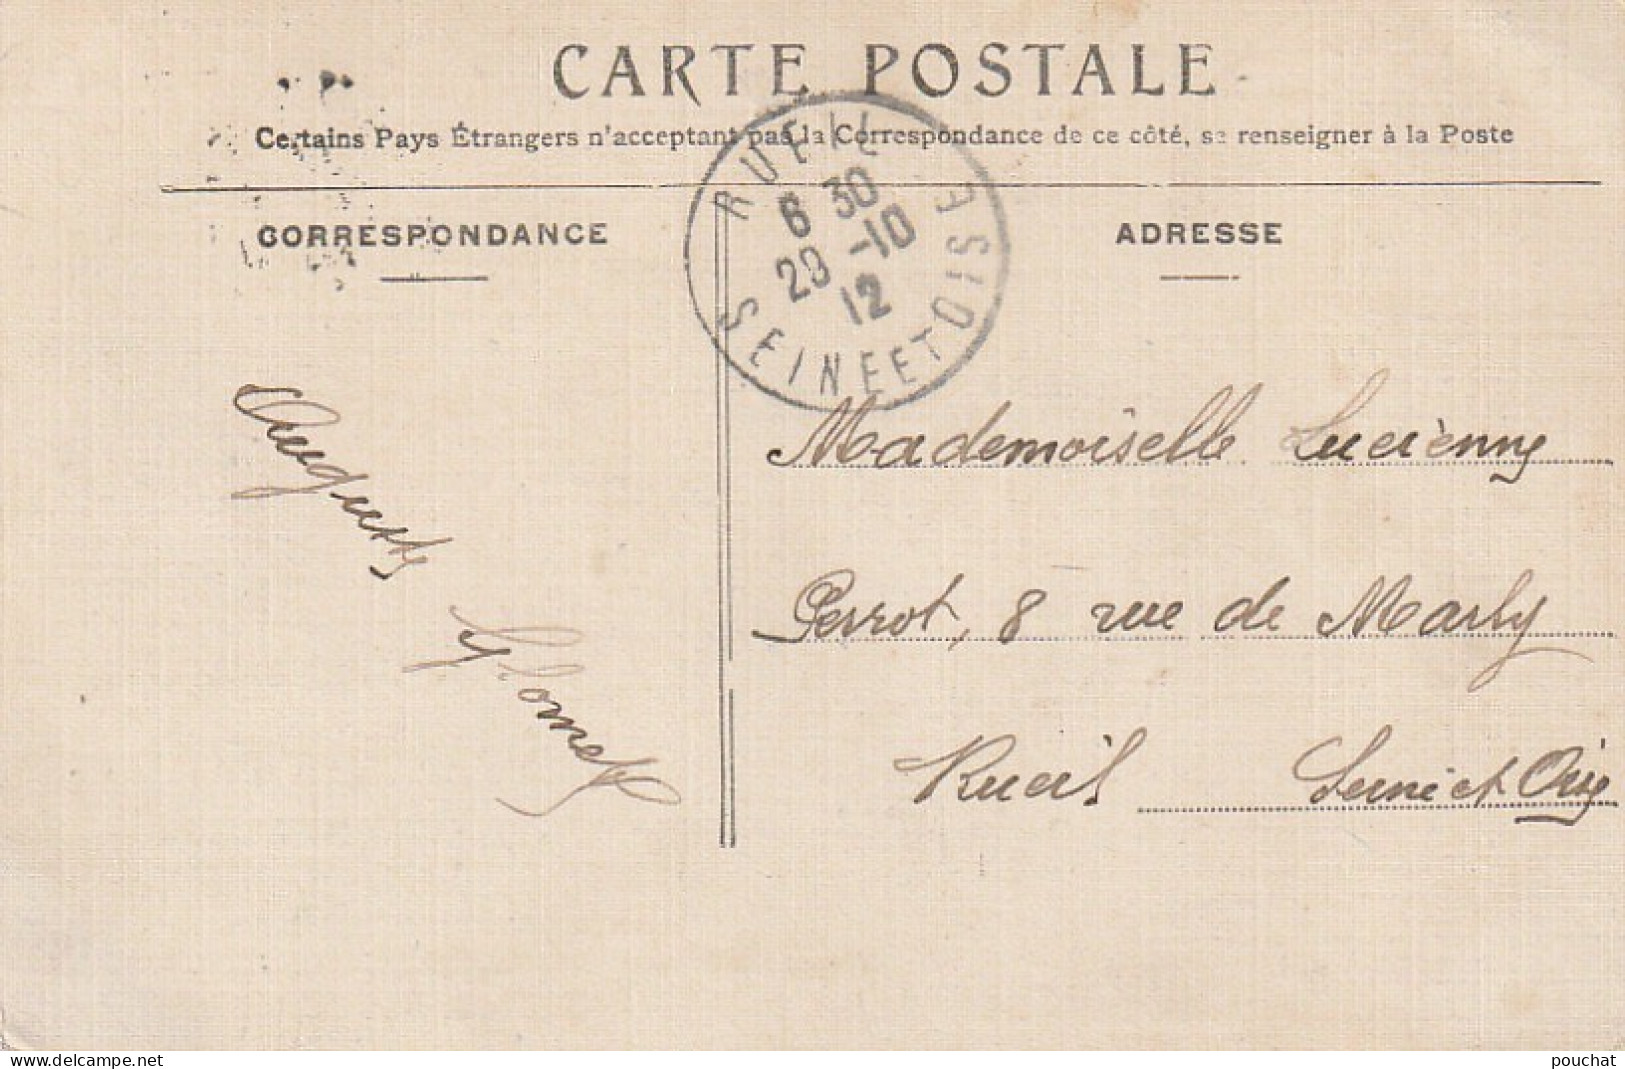 CARTE POSTALE
Certains Pays Étrangers n'acceptant pas la Correspondance de ce côté, se renseigner à la Poste
CORRESPONDANCE
ADRESSE
RUEIL
6 30
-10
12
SEINE ET OISE
Auguste
Mademoiselle Lucienne
Perrot, 8 rue de Marly
Rueil Seine et Oise
www.delcampe.net
pouchat